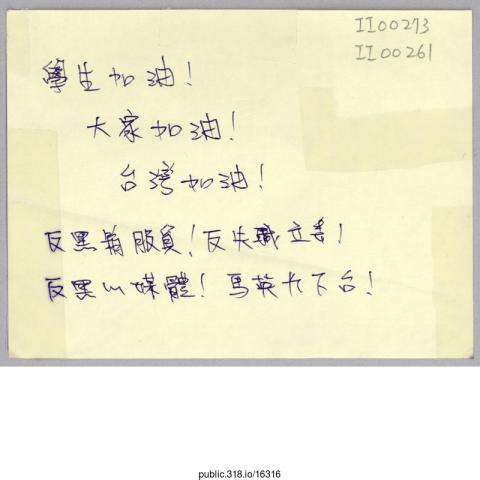 II00273
II00261
學生加油!
大家加油!
台灣加油!
反黑箱服貿!反失職立委!
反黑心媒體!馬英九下台!
public.318.io/16316